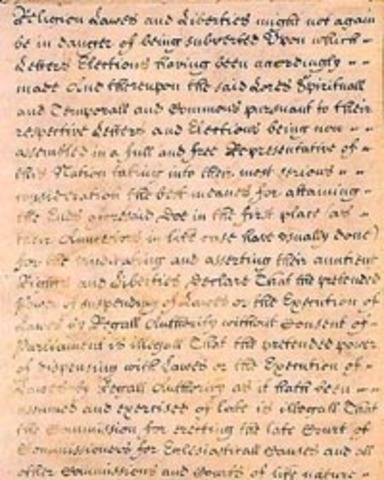 Religion Lawes and Liberties might not again
be in danger of being subverted Upon which -
Letters Elections having been accordingly -
made And thereupon the said Lords Spirituall
and Temporall and Commons pursuant to their
respective Letters and Elections being now - -
assembled in a full and free Representative of -
this Nation taking into their most serious - -
consideration the best meanes for attaining -
the Ends aforesaid Doe in the first place (as -
their Auncestors in like case have usually done)
for the vindicating and asserting their auntient
Rights and Liberties Declare That the pretended
Power of suspending of Lawes or the Execution of
Lawes by Regall Authority without Consent of
Parliament is illegall That the pretended power
of dispensing with Lawes or the Execution of -
Lawes by Regall Authority as it hath been - -
assumed and exercised of late is illegall That
the Commission for erecting the late Court of
Commissioners for Eclesiasticall Causes and all
other Commissions and Courts of like nature -